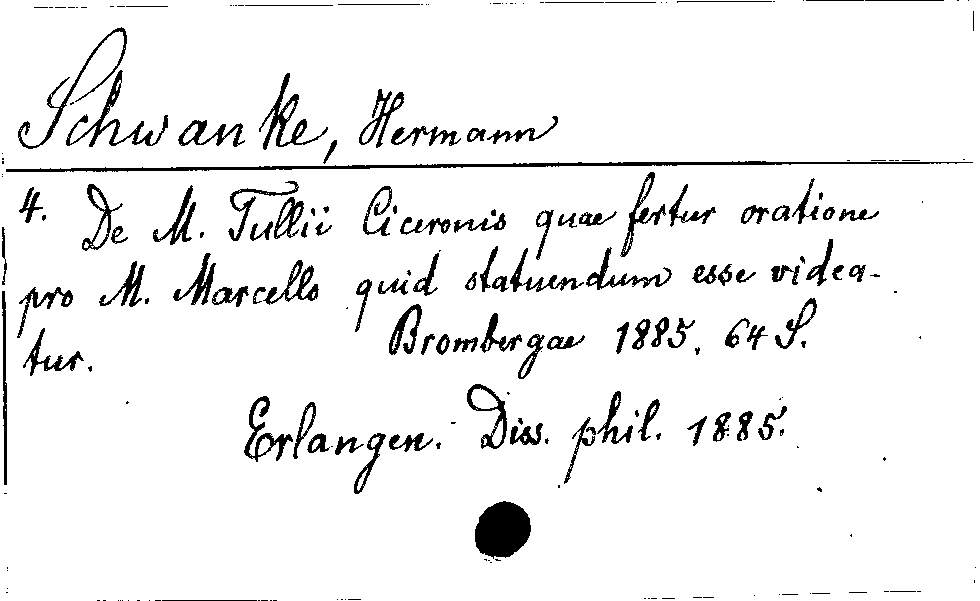 Schwanke, Hermann
4. De M. Tullii Ciceronis quae fertur oratione
pro M. Marcello quid statuendum esse videa-
tur. Brombergae 1885. 64 S.
Erlangen. Diss. phil. 1885.